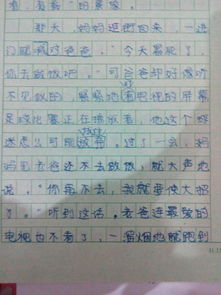 的景像。
那天，妈妈逛街回来，一进
门就喊这爸爸：“今天累死了，
你去做饭吧。”可爸爸却好像听
不见似的，紧紧地盯电视的屏幕
足球比赛正在播放着，他这个球
迷怎么可能放弃。过了一会，妈
妈见老爸还不去做饭，就大声地
说：“你再不去，我就要使大招
了。”听到这话，老爸连最爱的
电视也不看了，一溜烟地就跑到